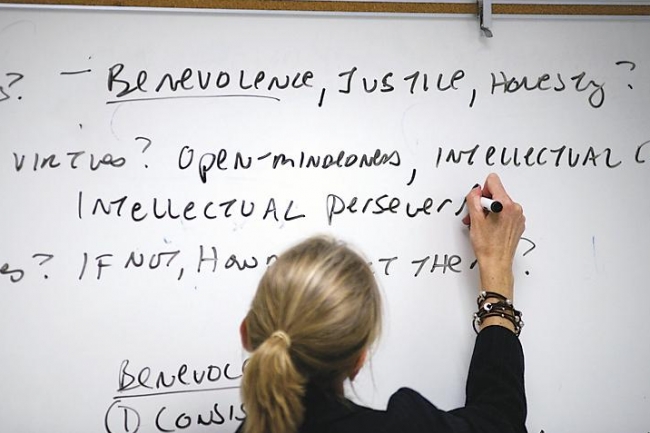 s? - BENEVOLENCE, JUSTICE, HONESTY?
VIRTUES? OPEN-MINDEDNESS, INTELLECTUAL C
INTELLECTUAL PERSEVER
s? IF NOT, HOW THE ?
BENEVOL
(1) CONSIS